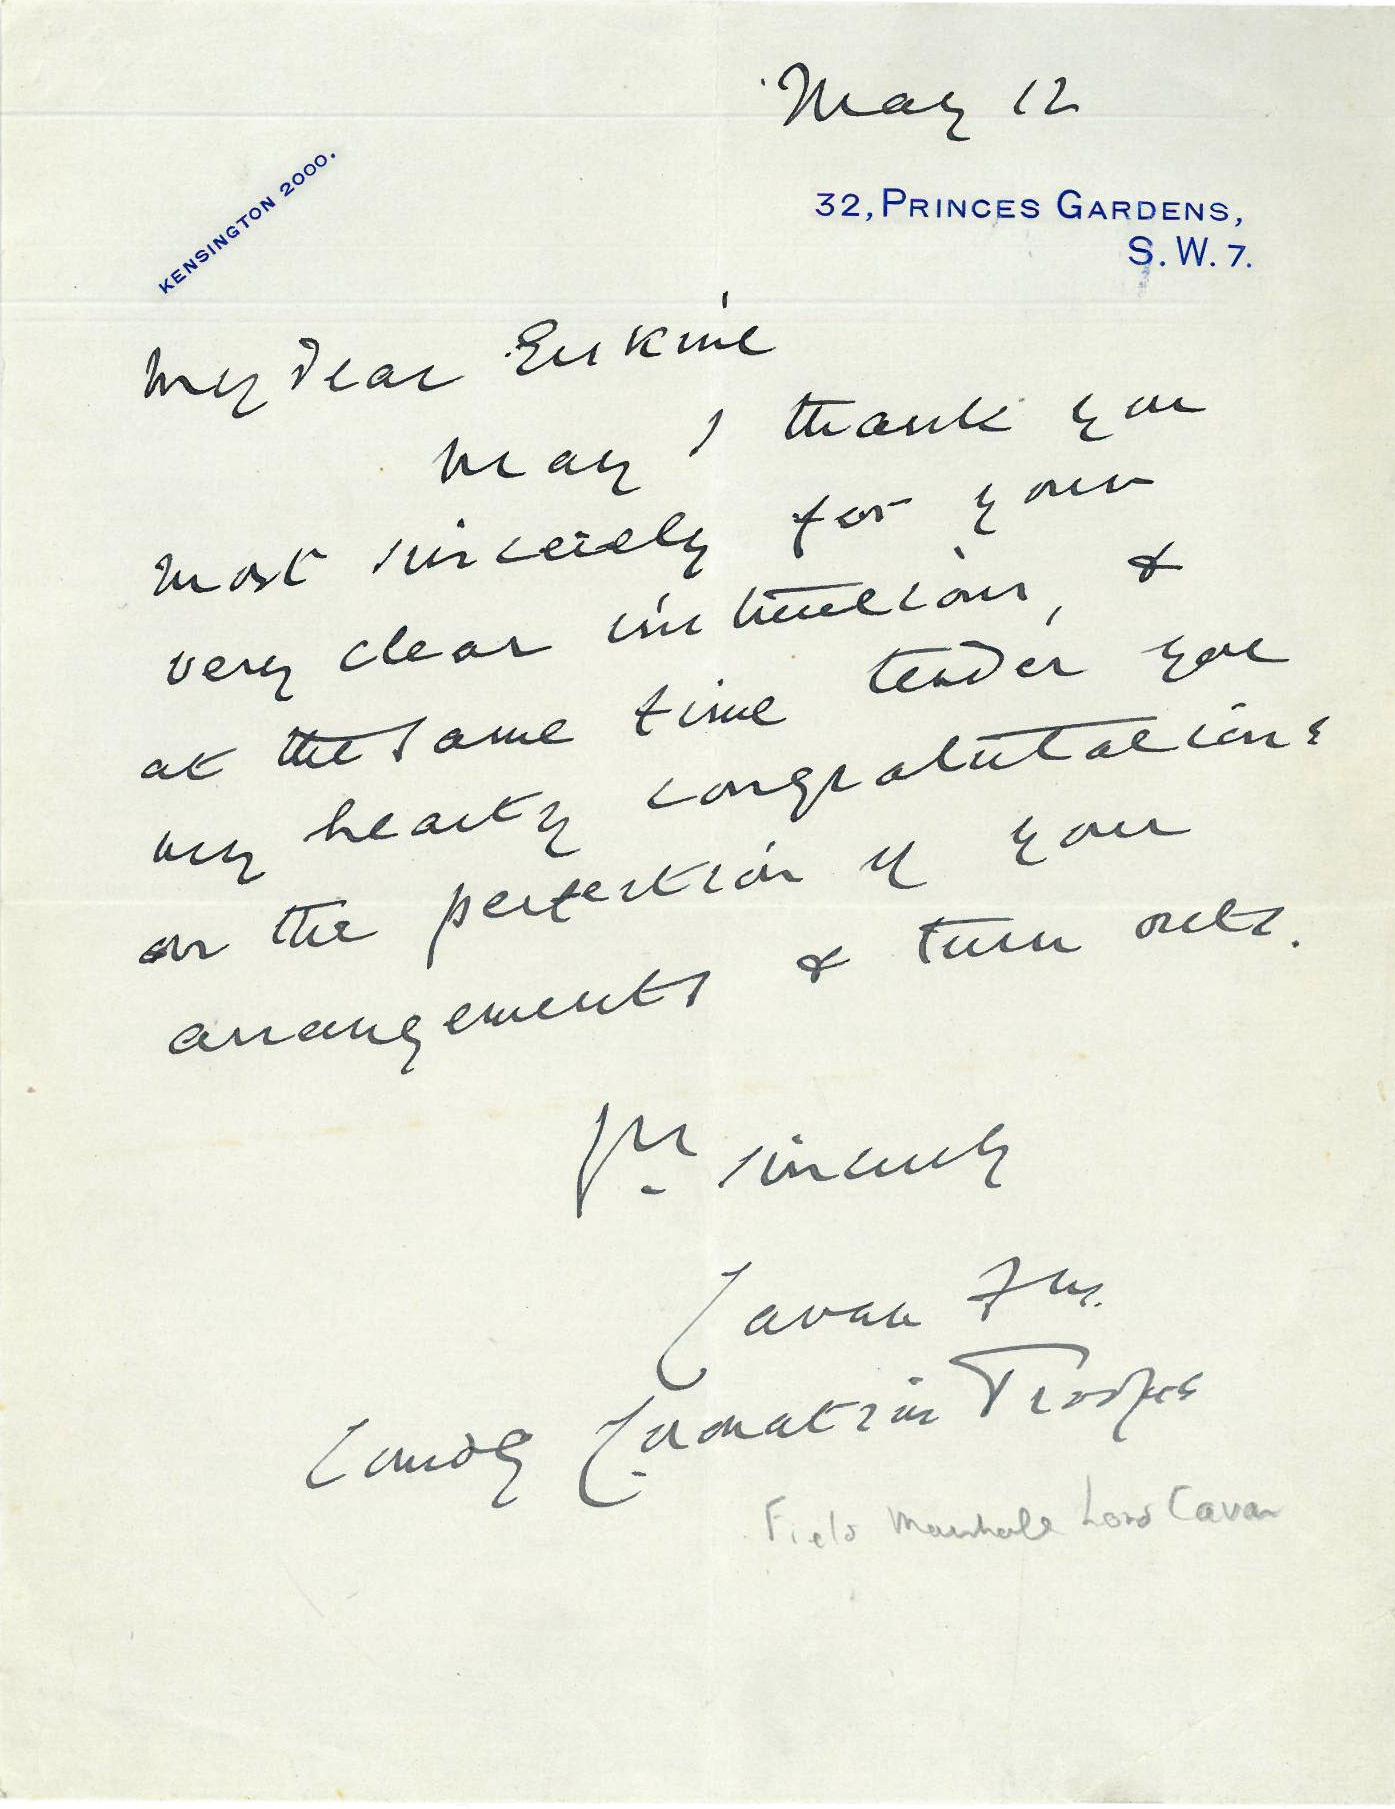 May 12
KENSINGTON 2000.
32, PRINCES GARDENS,
S.W.7.
My dear Erskine
May I thank you
most sincerely for your
very clear instructions, &
at the same time tender you
my hearty congratulations
on the perfection of your
arrangements & turn outs.
Yrs sincerely
Cavan F.M.
Comdg Coronation Troops
Field Marshale Lord Cavan